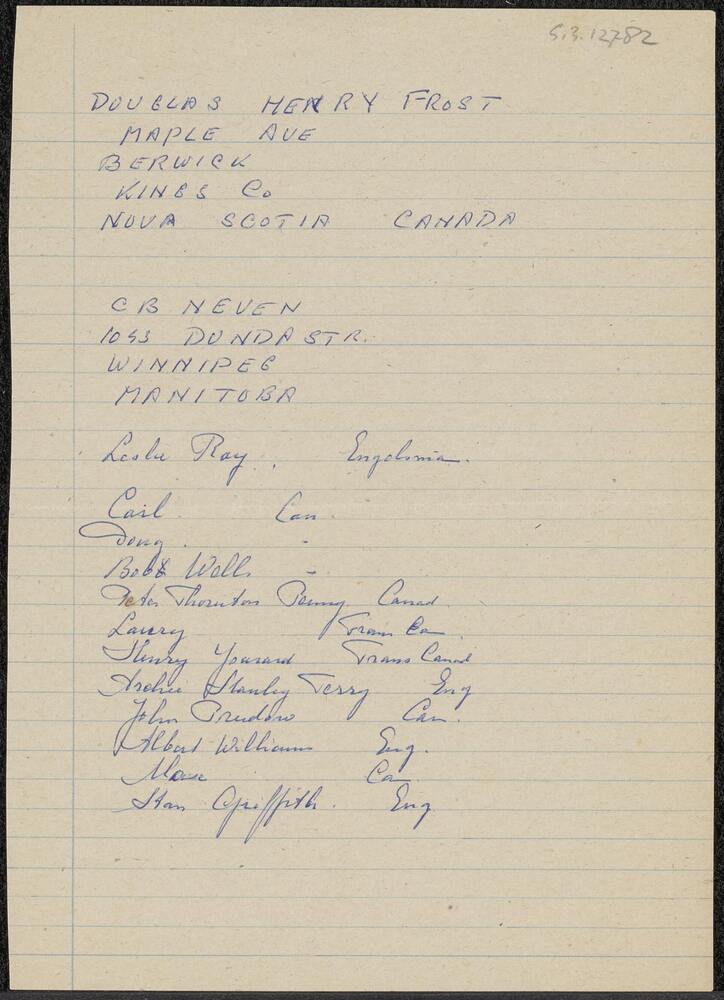 S.3.12782
DOUGLAS HENRY FROST
MAPLE AVE
BERWICK
KINGS Co
NOVA SCOTIA CANADA
CB NEVEN
1053 DUNDA STR.
WINNIPEG
MANITOBA
Leslie Ray.
Carl Can
Doug -
Bobb Wells -
Peter Thornton Penny Canad.
Laurry Frans Ca.
Henry Frans Canad
Archie Stanley Terry Eng
John Can.
Albert Williams Eng.
Ca.
Stan Griffith. Eng